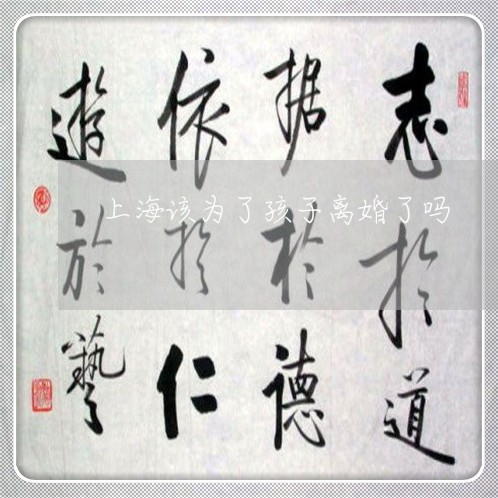 志於道
据於德
依於仁
遊於藝
上海该为了孩子离婚了吗